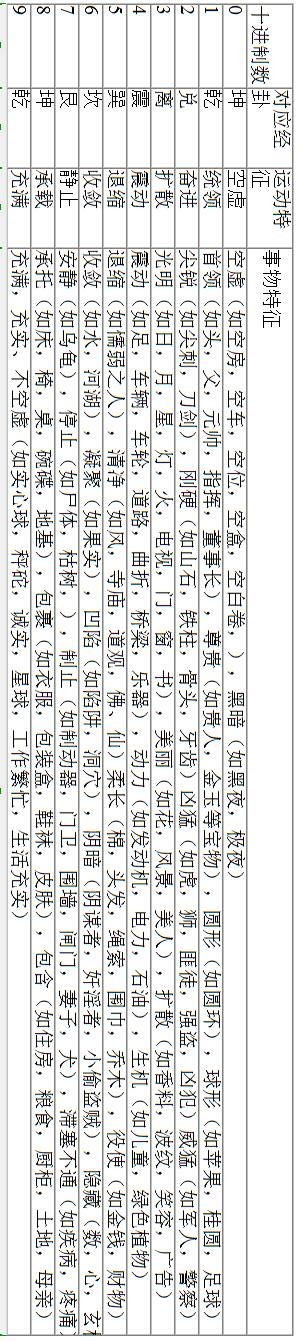 十进制数 对应经卦 运动特征 事物特征
0 坤 空虚 空虚（如空房，空车，空位，空盒，空白卷，），黑暗（如黑夜，极夜）
1 乾 统领 首领（如头，父，元帅，指挥，董事长），尊贵（如贵人，金玉等宝物），圆形（如圆环），球形（如苹果，桂圆，足球）
2 兑 奋进 尖锐（如尖刺，刀剑），刚硬（如山石，铁柱，骨头，牙齿）凶猛（如虎，狮，匪徒，强盗，凶犯）威猛（如军人，警察）
3 离 扩散 光明（如日，月，星，灯，火，电视，门，窗，书），美丽（如花，风景，美人），扩散（如香料，波纹，笑容，广告）
4 震 震动 震动（如足，车辆，车轮，道路，曲折，桥梁，乐器），动力（如发动机，电力，石油），生机（如儿童，绿色植物）
5 巽 退缩 退缩（如懦弱之人），清净（如风，寺庙，道观，佛、仙）柔长（棉，头发，绳索，围巾，乔木），役使（如金钱，财物）
6 坎 收敛 收敛（如水，河湖），凝聚（如果实），凹陷（如陷阱，洞穴），阴暗（阴谋者，奸淫者，小偷盗贼），隐藏（数，心，玄
7 艮 静止 安静（如乌龟），停止（如尸体，枯树，），制止（如制动器，门卫，围墙，闸门，妻子，犬），滞塞不通（如疾病，疼痛）
8 坤 承载 承托（如床，椅，桌，碗碟，地基），包裹（如衣服，包装盒，鞋袜，皮肤），包含（如住房，粮食，厨柜，土地，母亲）
9 乾 充满 充满，充实、不空虚（如实心球，秤砣，诚实，星球，工作繁忙，生活充实）